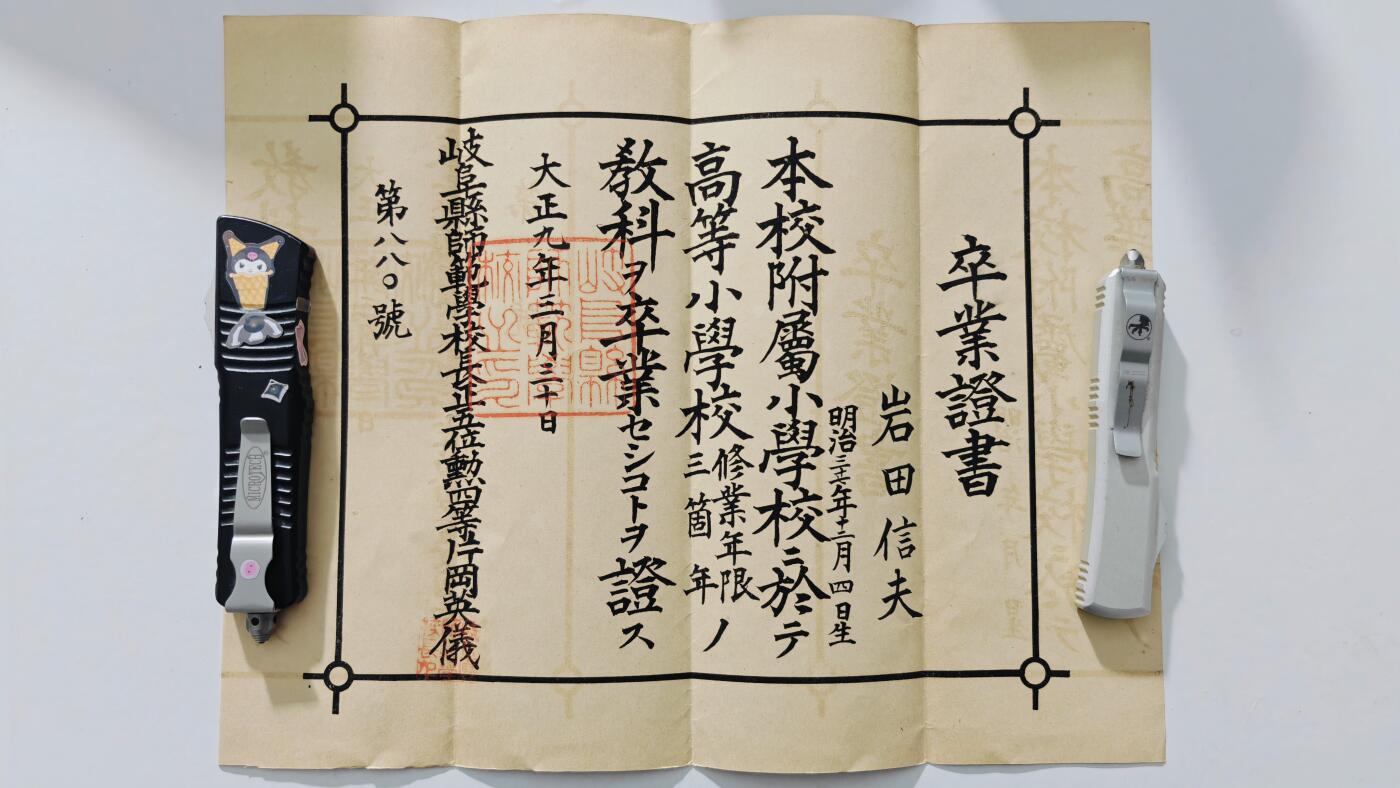 卒業證書
岩田信夫
明治三十七年十二月四日生
本校附屬小學校ニ於テ
高等小學校修業年限三箇年ノ
教科ヲ卒業セシコトヲ證ス
大正九年三月三十日
岐阜縣師範學校長正五位勲四等片岡英儀
第八八〇號
岐阜縣
師範學
校之印
MICROTECH